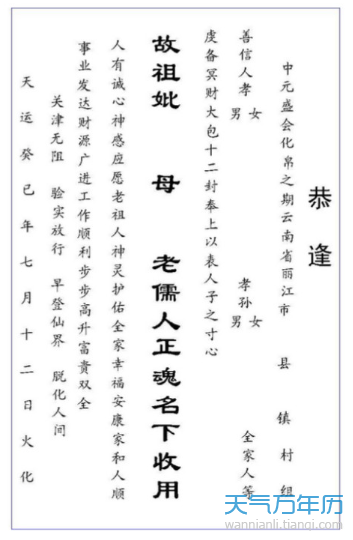 恭逢
中元盛会化帛之期云南省丽江市 县 镇 村 组
善信人孝 男 女 孝孙 男 女 全家人等
虔备冥财大包十二封奉上以表人子之寸心
故祖妣 母 老儒人正魂名下收用
人有诚心神感应愿老祖人神灵护佑全家幸福安康家和人顺
事业发达财源广进工作顺利步步高升富贵双全
关津无阻 验实放行 早登仙界 脱化人间
天运癸巳年七月十二日火化
天气万年历
wannianli.tianqi.com